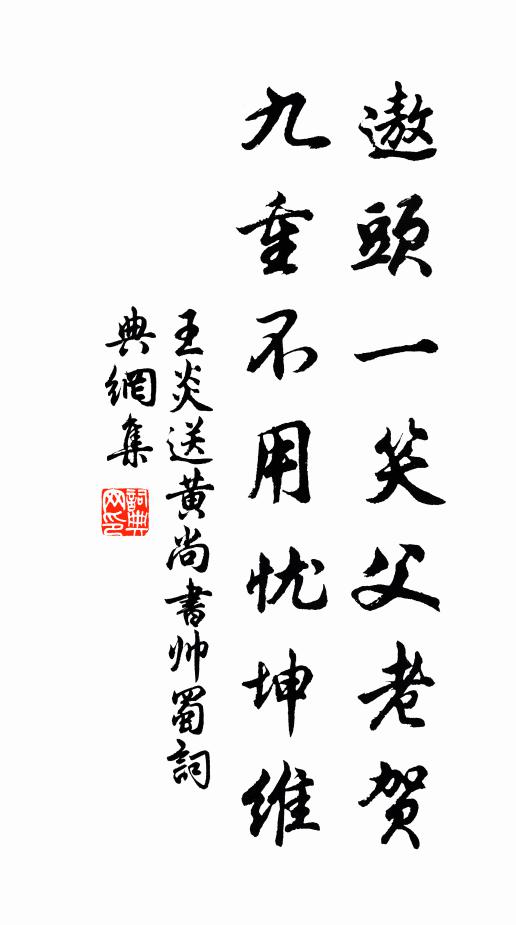 遨頭一笑父老贺
九重不用忧坤維
王炎送黄尚書帅蜀詞
典網集
詞典网印